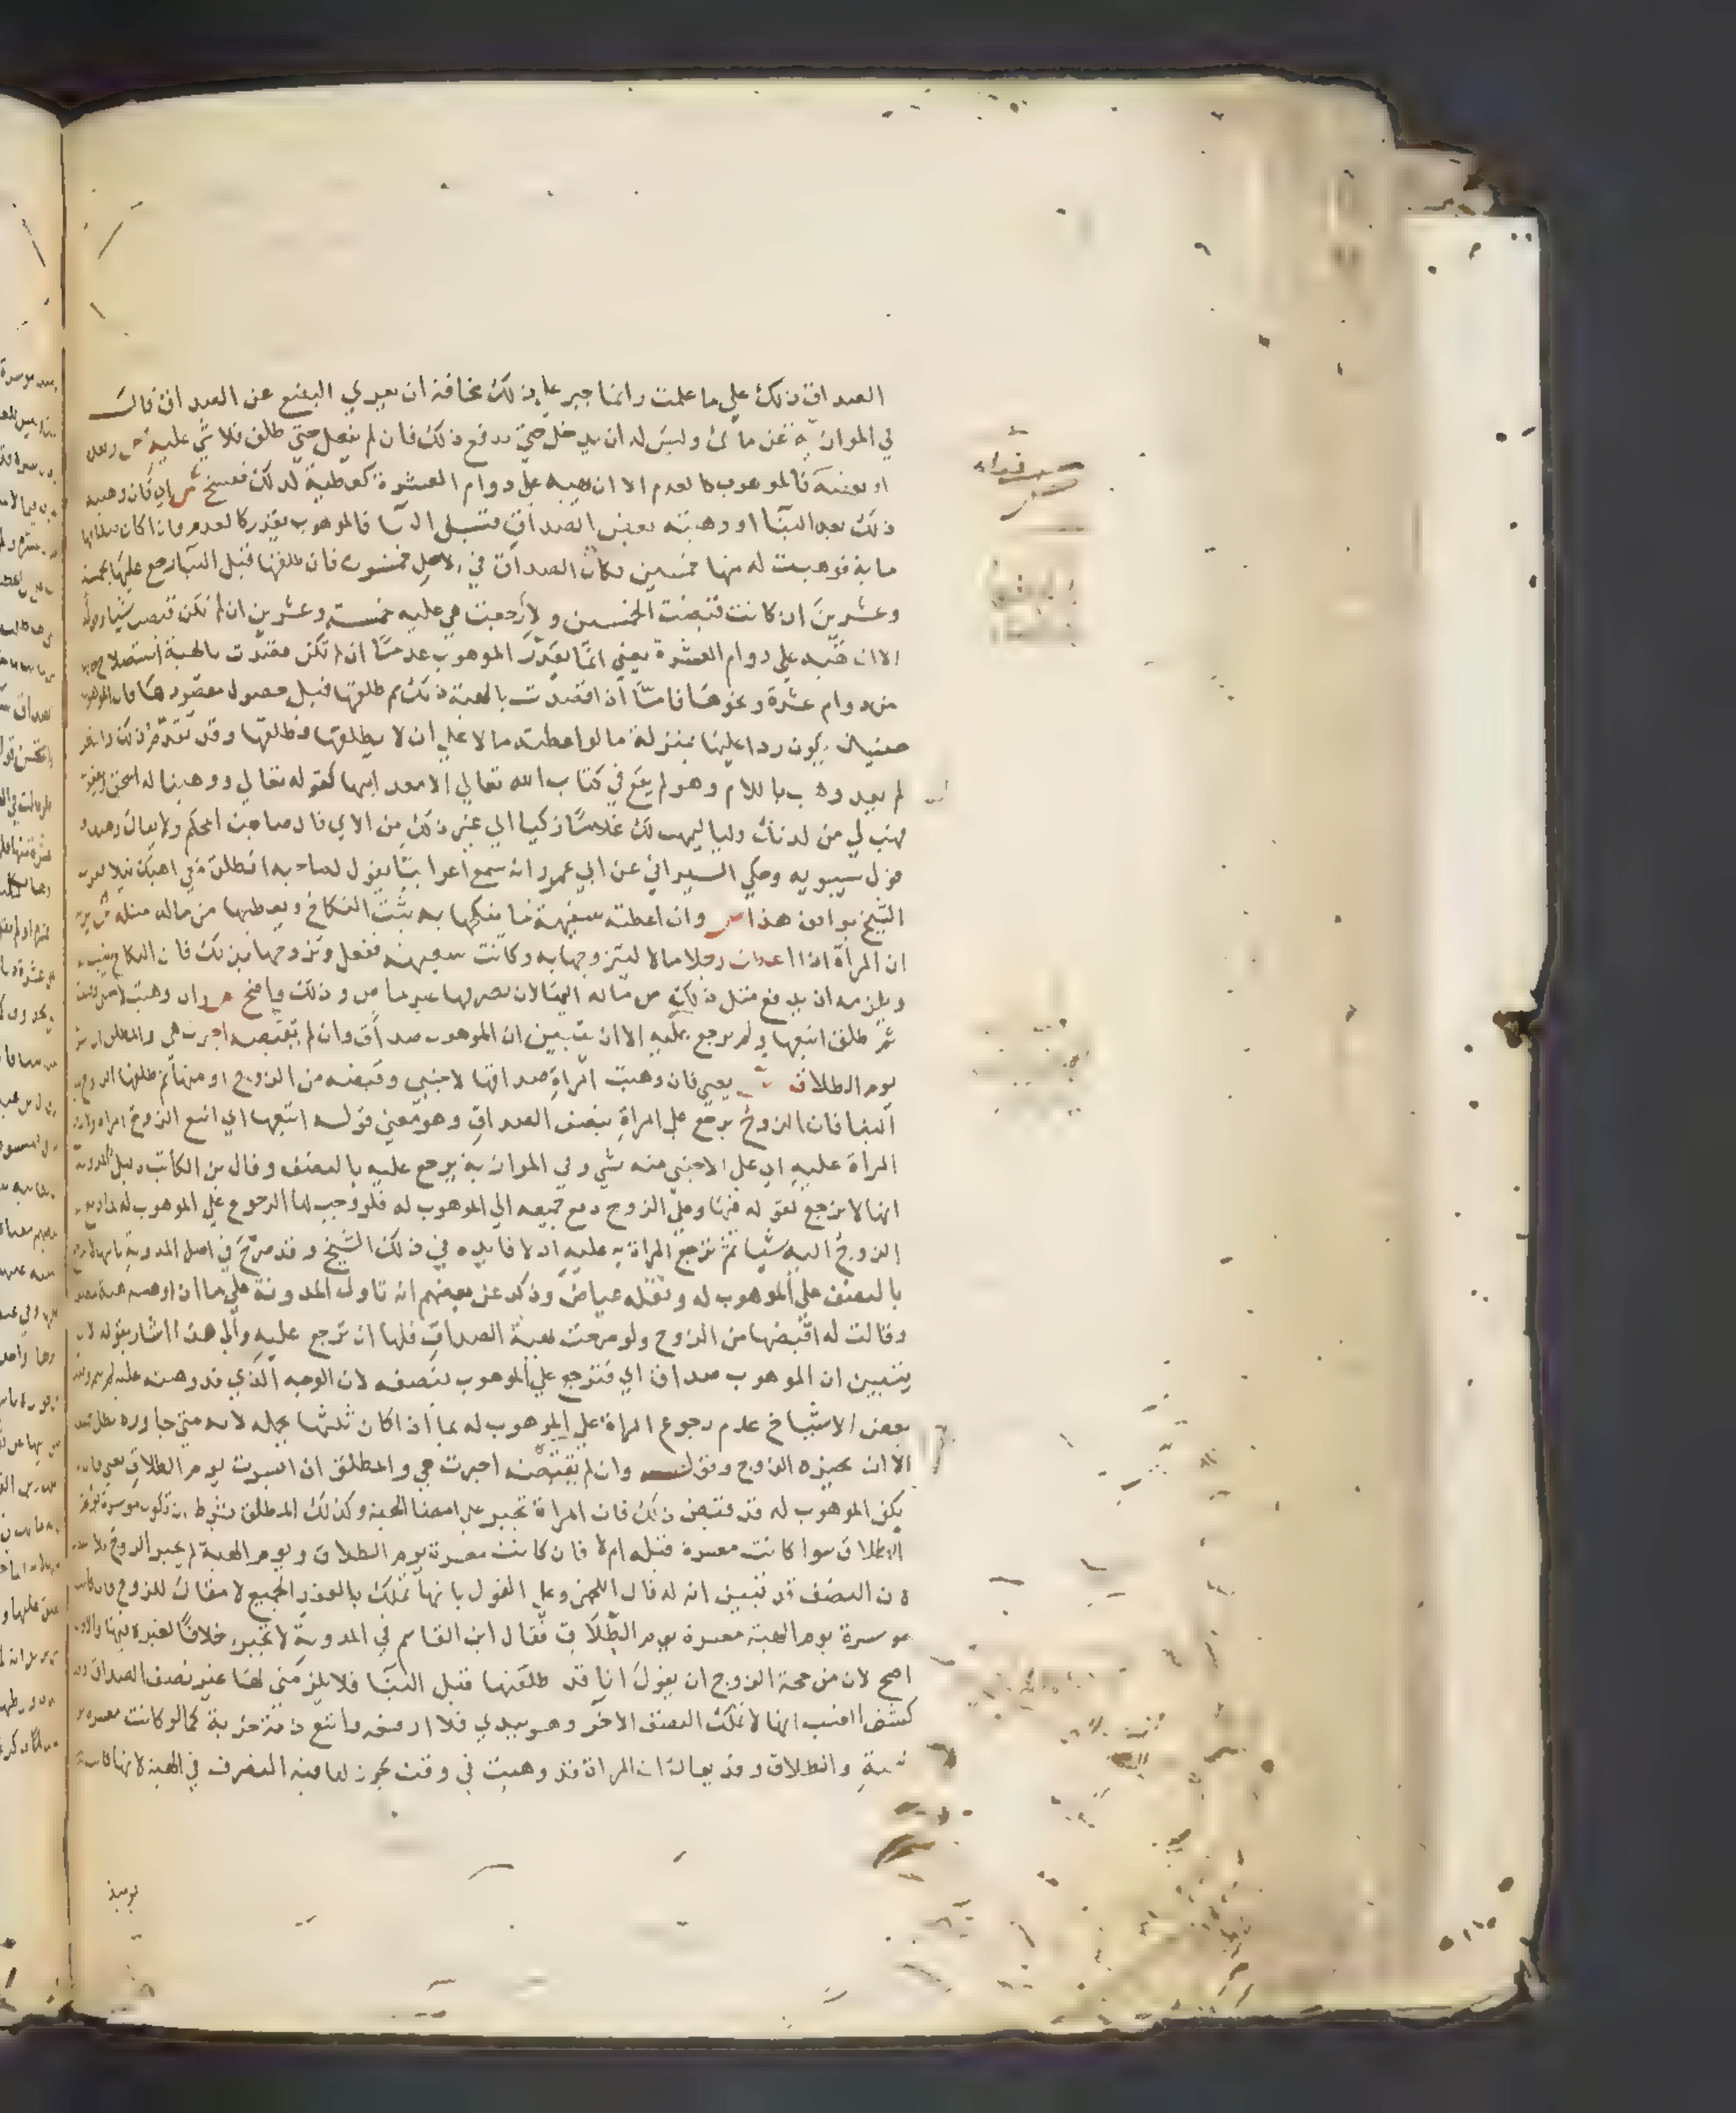 الصداق ذلك علي ما علمت وانما جبر علي ذلك مخافة ان يعري البضع عن الصداق قال
في الموازية عن مالك وليس له ان يدخل حتي يدفع ذلك فان لم يفعل حتي طلق فلا شي عليه ص وبعد
او بعضه فالموهوب كالعدم الا ان تهبه علي دوام العشرة كعطية لذلك ففسخ ش اي كان وهبه
ذلك بعد البنا او وهبته بعض الصداق قبل البنا فالموهوب يقدر كالعدم فاذا كان صداقها
ماية فوهبت له منها خمسين فكان الصداق في الاصل خمسون فان طلقها قبل البنا رجع عليها بخمسة
وعشرين ان كانت قبضت الخمسين ولا رجعت هي عليه خمسة وعشرين ان لم تكن قبضت شيا وقوله
الا ان تهبه علي دوام العشرة يعني انما يقدر الموهوب عدما ان لم تكن قصدت بالهبة استصلاح
من دوام عشرة ونحوها فاما اذا قصدت بالهبة ذلك ثم طلقها قبل حصول مقصودها فان الموهوب
حينيذ يكون ردا عليها بمنزلة ما لو اعطته مالا علي ان لا يطلقها فطلقها وقد تقدم ذلك
لم يعد وهب باللام وهو لم يقع في كتاب الله تعالي الا معد ايها كقوله تعالي ووهبنا له اسحق ويعقوب
فهب لي من لدنك وليا ليهب لك غلاما زكيا الي غير ذلك من الاي قال صاحب المحكم ولا يقال وهبه
قول سيبويه وحكي السيرافي عن ابي عمرو انه سمع اعرابيا يقول لصاحبه انطلق معي اهبك نبلا
الشيخ يوافق هذا ص وان اعطته سفيهة ما ينكحها به ثبت النكاح ويعطيها من ماله مثله ش يريد
ان المراة اذا اعطت رجلا مالا ليتزوجها به وكانت سفيهة ففعل وتزوجها بذلك فان النكاح يثبت
ويلزمه ان يدفع مثل ذلك من ماله اليها لان تصرفها غير ماض وذلك واضح ص وان وهبت لاجنبي وقبضه
ثم طلق اتبعها ولم ترجع عليه الا ان تبين ان الموهوب صداق وان لم يقبضه اجبرت هي والمطلق ان ايسرت
يوم الطلاق ش يعني فان وهبت المراة صداقها لاجنبي وقبضه من الزوج او منها ثم طلقها الزوج قبل
البنا فان الزوج يرجع علي المراة بنصف الصداق وهو معني قوله اتبعها اي اتبع الزوج المراة ولا ترجع
المراة عليه اي علي الاجنبي منه بشي وفي الموازية يرجع عليه بالنصف وقال بن الكاتب دليل المدونة
انها لا ترجع لقوله فيها وعلي الزوج دفع جميعه الي الموهوب له فلو وجب لها الرجوع علي الموهوب له لما دفع
الزوج اليه شيا ثم ترجع المراة به عليه اذ لا فايدة في ذلك الشيخ وقد صرح في اصل المدونة بانها لا ترجع
بالنصف علي الموهوب له ونقله عياض وذكر عن بعضهم انه تاول المدونة علي ما اذا وهبته هبة
وقالت له اقبضها من الزوج ولو صرحت بهبة الصداق فلها ان ترجع عليه والي هذا اشار بقوله لان
يتبين ان الموهوب صداق اي فترجع علي الموهوب بنصفه لان الوجه الذي قد وهبته عليه لم يتم وقيد
بعض الاشياخ عدم رجوع المراة علي الموهوب له بما اذا كان ثلثها يحمله لانه متي جاوزه بطل جميعه
الا ان يجيزه الزوج وقوله وان لم يقبضه اجبرت هي والمطلق ان ايسرت يوم الطلاق يعني فان لم
يكن الموهوب له قد قبض ذلك فان المراة تجبر علي امضا الهبة وكذلك المطلق بشرط ان تكون موسرة يوم
الطلاق سوا كانت معسرة قبله ام لا فان كانت معسرة يوم الطلاق ويوم الهبة لم يجبر الزوج
لان النصف قد تبين انه له قال اللخمي وعلي القول بانها تملك بالعقد الجميع لا مقال للزوج فان كانت
موسرة يوم الهبة معسرة يوم الطلاق فقال ابن القاسم في المدونة لا تجبر خلافا لغيره فيها والاول
اصح لان من حجة الزوج ان يقول انا قد طلقتها قبل البنا فلا يلزمني لها غير نصف الصداق وقد
كشف الغيب انها لا تملك النصف الاخر وهو بيدي فلا ادفعه واتبع ذمة خربة كما لو كانت معسرة يوم
الهبة والطلاق وقد يقال ان المراة قد وهبت في وقت يجوز لها فيه التصرف في الهبة لانها كانت
يوميذ